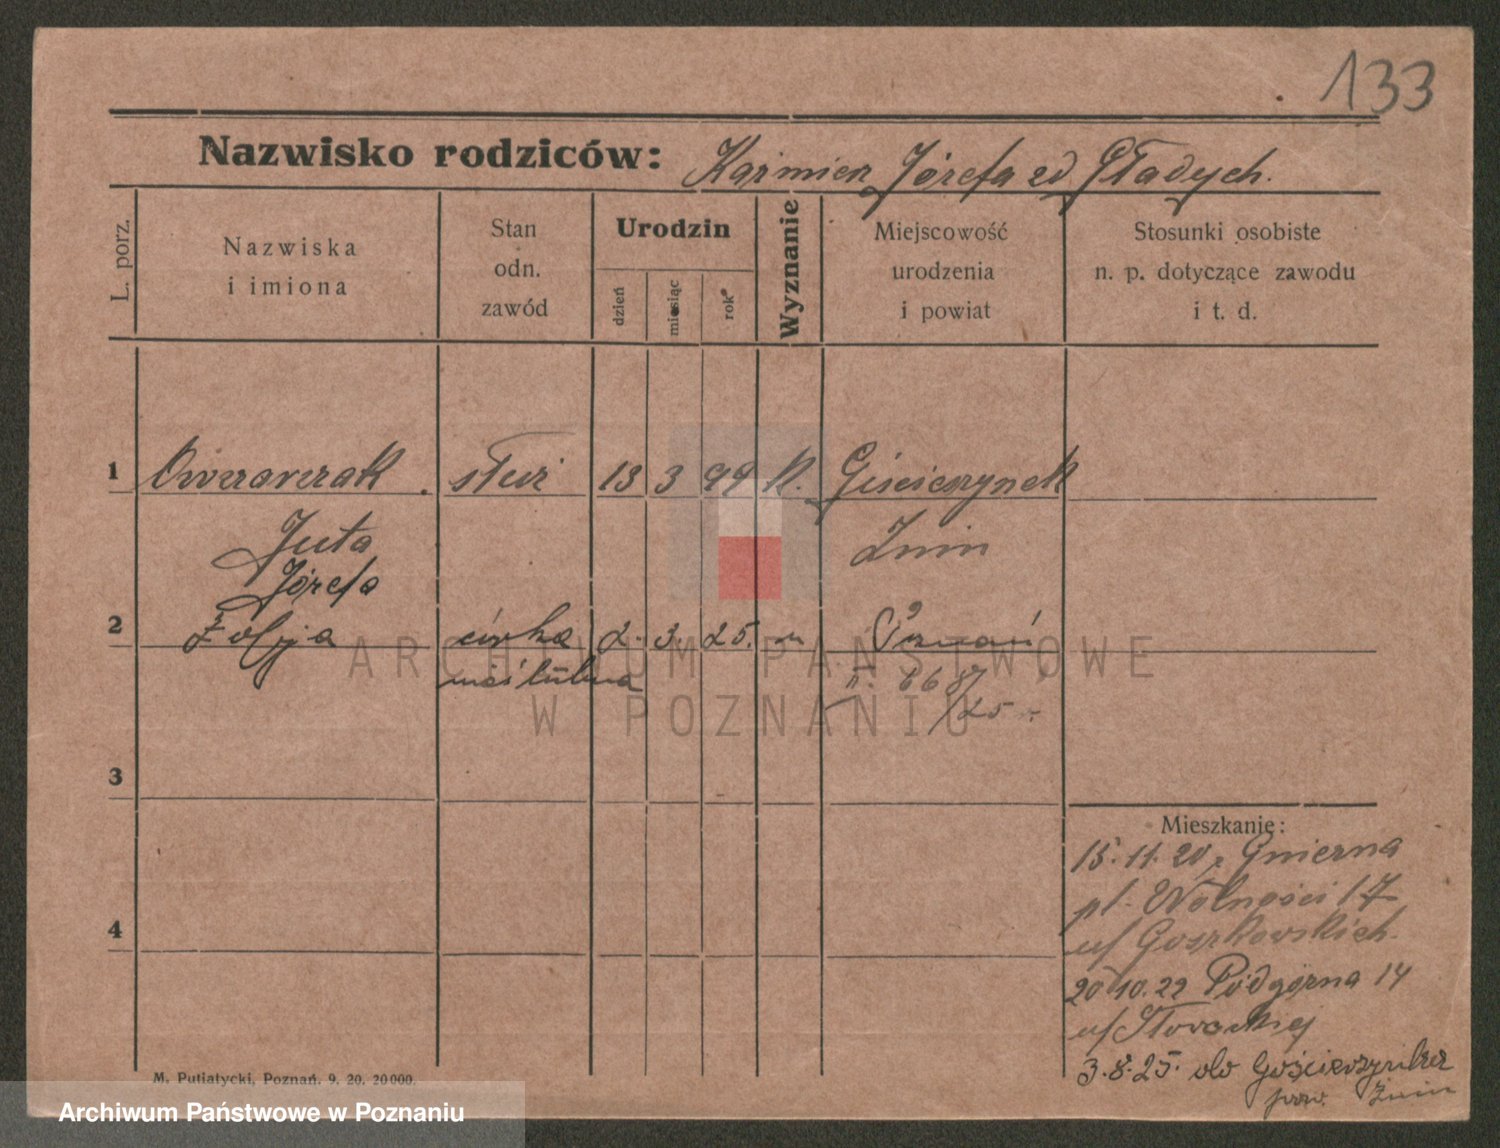 133
Nazwisko rodziców: Kaźmierz Józefa zd Gładych.
L. porz.
Nazwiska
i imiona
Stan
odn.
zawód
Urodzin
dzień
miesiąc
rok
Wyznanie
Miejscowość
urodzenia
i powiat
Stosunki osobiste
n. p. dotyczące zawodu
i t. d.
1 Owczarczak służ 13 3 99 k. Gościeszynek
Żnin
Józefa
2 Zofja córka 2. 3. 25. Poznań
nieślubna
668/25
3
4
Mieszkanie:
15.11.20 z Gniezna
pl. Wolności 17
u/ Goszkowskich
20.10.22 Podgórna 14
u/
3.8.25. do
pow. Żnin
M. Putiatycki, Poznań. 9. 20. 20000.
ARCHIWUM PAŃSTWOWE
W POZNANIU
Archiwum Państwowe w Poznaniu